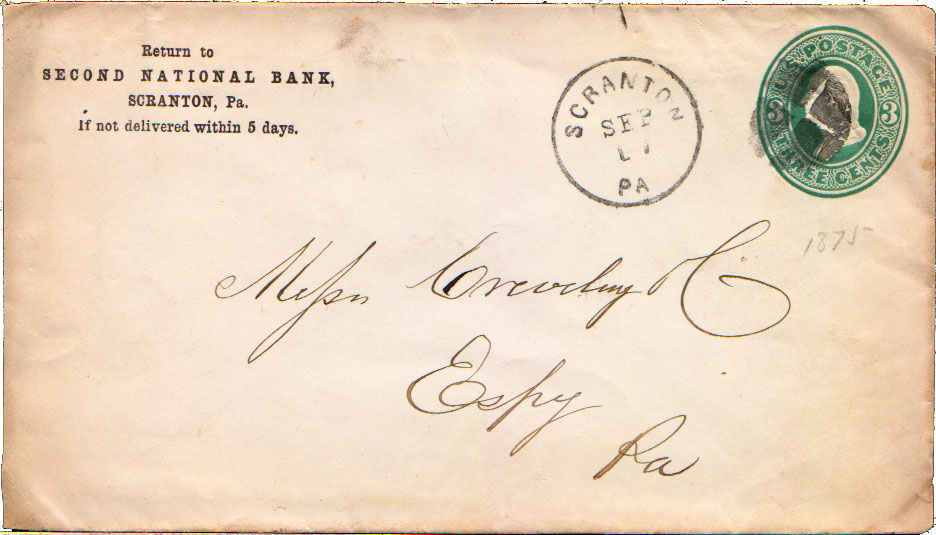 Return to
SECOND NATIONAL BANK,
SCRANTON, Pa.
If not delivered within 5 days.
SCRANTON
SEP
PA
U.S. POSTAGE
3 3
THREE CENTS
1875
Messrs Creveling & Co
Espy
Pa